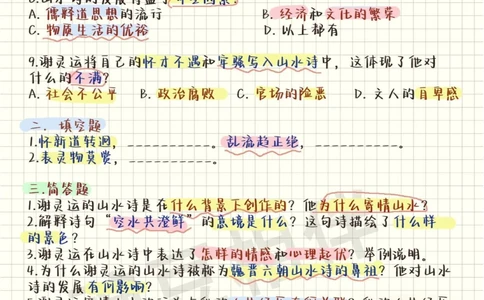 A. 儒释道思想的流行 B. 经济和文化的繁荣
C. 物质生活的优裕 D. 以上都有
9.谢灵运将自己的怀才不遇和牢骚写入山水诗中，这体现了他对
什么的不满？
A. 社会不公平 B. 政治腐败 C. 官场的险恶 D. 文人的自卑感
二. 填空题
1.怀新道转迥，__________。乱流趋正绝，__________。
2.表灵物莫赏，__________。
三.简答题
1.谢灵运的山水诗是在什么背景下创作的？他为什么寄情山水？
2.解释诗句“空水共澄鲜”的意境是什么？这句诗描绘了什么样
的景色？
3.谢灵运在山水诗中表达了怎样的情感和心理起伏？举例说明。
4.为什么谢灵运的山水诗被称为魏晋六朝山水诗的鼻祖？他对山水
诗的发展有何影响？